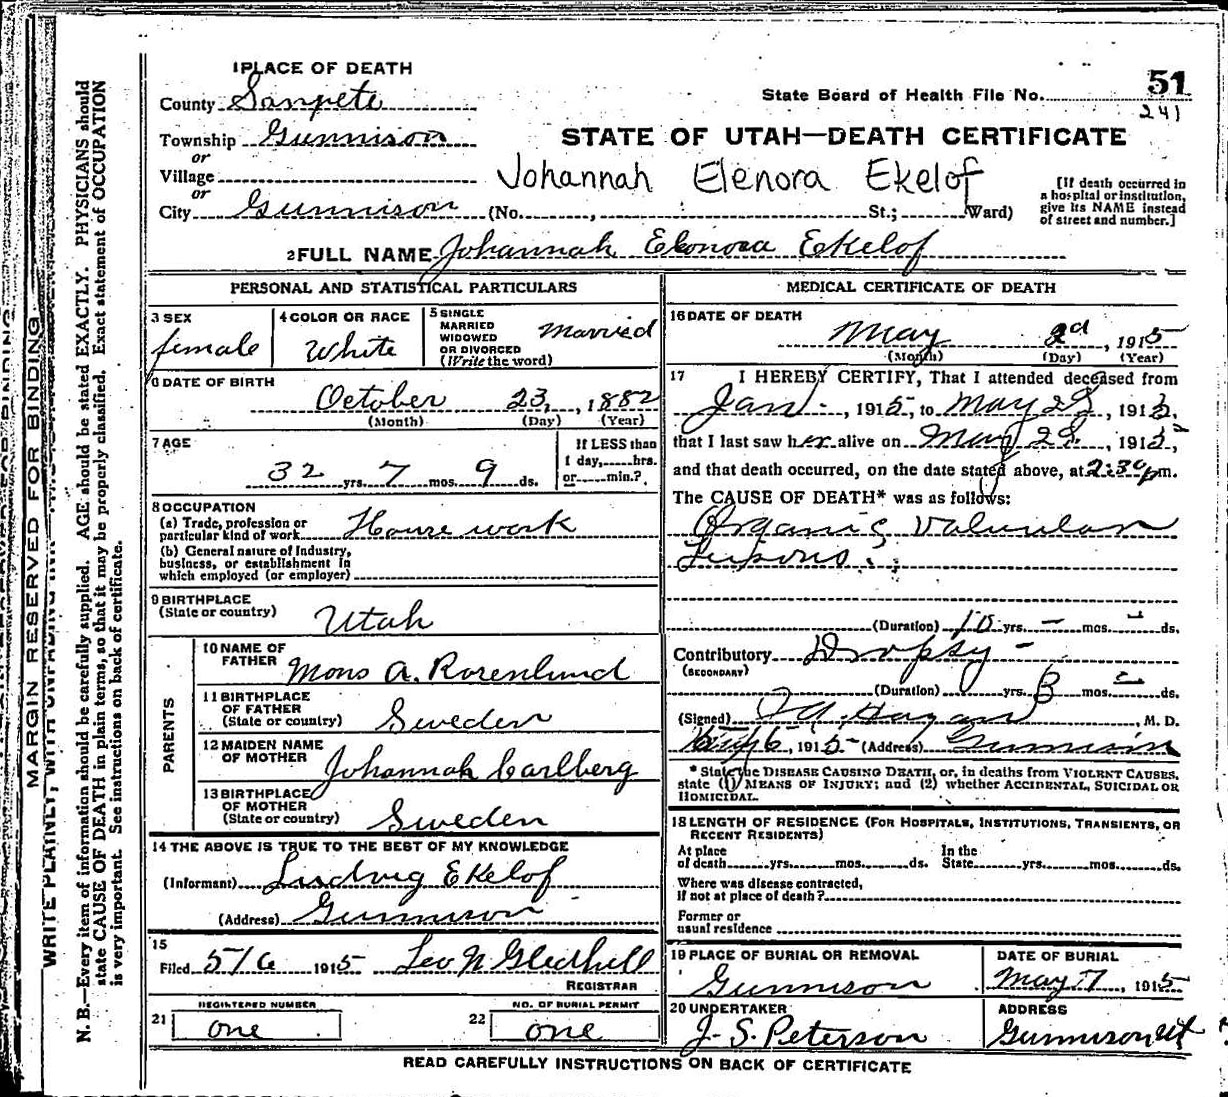 MARGIN RESERVED FOR BINDING
WRITE PLAINLY, WITH UNFADING INK
N. B.—Every item of information should be carefully supplied. AGE should be stated EXACTLY. PHYSICIANS should
state CAUSE OF DEATH in plain terms, so that it may be properly classified. Exact statement of OCCUPATION
is very important. See instructions on back of certificate.
1 PLACE OF DEATH
County Sanpete
Township Gunnison
or
Village
or
City Gunnison (No. , St.; Ward)
State Board of Health File No. 51
241
STATE OF UTAH—DEATH CERTIFICATE
Johannah Elenora Ekelof
[If death occurred in
a hospital or institution,
give its NAME instead
of street and number.]
2 FULL NAME Johannah Elonora Ekelof
PERSONAL AND STATISTICAL PARTICULARS
3 SEX
female
4 COLOR OR RACE
White
5 SINGLE
MARRIED
WIDOWED
OR DIVORCED
(Write the word)
Married
6 DATE OF BIRTH
October 23, , 1882
(Month) (Day) (Year)
7 AGE
32 yrs. 7 mos. 9 ds.
If LESS than
1 day, hrs.
or min.?
8 OCCUPATION
(a) Trade, profession or
particular kind of work House work
(b) General nature of Industry,
business, or establishment in
which employed (or employer)
9 BIRTHPLACE
(State or country)
Utah
PARENTS
10 NAME OF
FATHER
Mons A. Rosenlund
11 BIRTHPLACE
OF FATHER
(State or country)
Sweden
12 MAIDEN NAME
OF MOTHER
Johannah Carlberg
13 BIRTHPLACE
OF MOTHER
(State or country)
Sweden
14 THE ABOVE IS TRUE TO THE BEST OF MY KNOWLEDGE
(Informant) Ludvig Ekelof
(Address) Gunnison
15
Filed 5/6 1915 Leo N Gledhill
REGISTRAR
REGISTERED NUMBER
21 one
NO. OF BURIAL PERMIT
22 one
MEDICAL CERTIFICATE OF DEATH
16 DATE OF DEATH
May 2d , 1915
(Month) (Day) (Year)
17 I HEREBY CERTIFY, That I attended deceased from
Jan , 1915, to May 2d , 1915,
that I last saw her alive on May 2d , 1915
and that death occurred, on the date stated above, at 2:30 pm.
The CAUSE OF DEATH* was as follows:
Organic
(Duration) 10 yrs. — mos. ds.
Contributory Dropsy —
(SECONDARY)
(Duration) yrs. 3 mos. ds.
(Signed) Hagan , M. D.
, 1915 (Address) Gunnison
* State the DISEASE CAUSING DEATH, or, in deaths from VIOLENT CAUSES,
state (1) MEANS OF INJURY; and (2) whether ACCIDENTAL, SUICIDAL OR
HOMICIDAL.
18 LENGTH OF RESIDENCE (FOR HOSPITALS, INSTITUTIONS, TRANSIENTS, OR
RECENT RESIDENTS)
At place In the
of death yrs. mos. ds. State yrs. mos. ds.
Where was disease contracted,
if not at place of death?
Former or
usual residence
19 PLACE OF BURIAL OR REMOVAL
Gunnison
DATE OF BURIAL
May 7 , 1915
20 UNDERTAKER
J. S. Peterson
ADDRESS
Gunnison Ut
READ CAREFULLY INSTRUCTIONS ON BACK OF CERTIFICATE